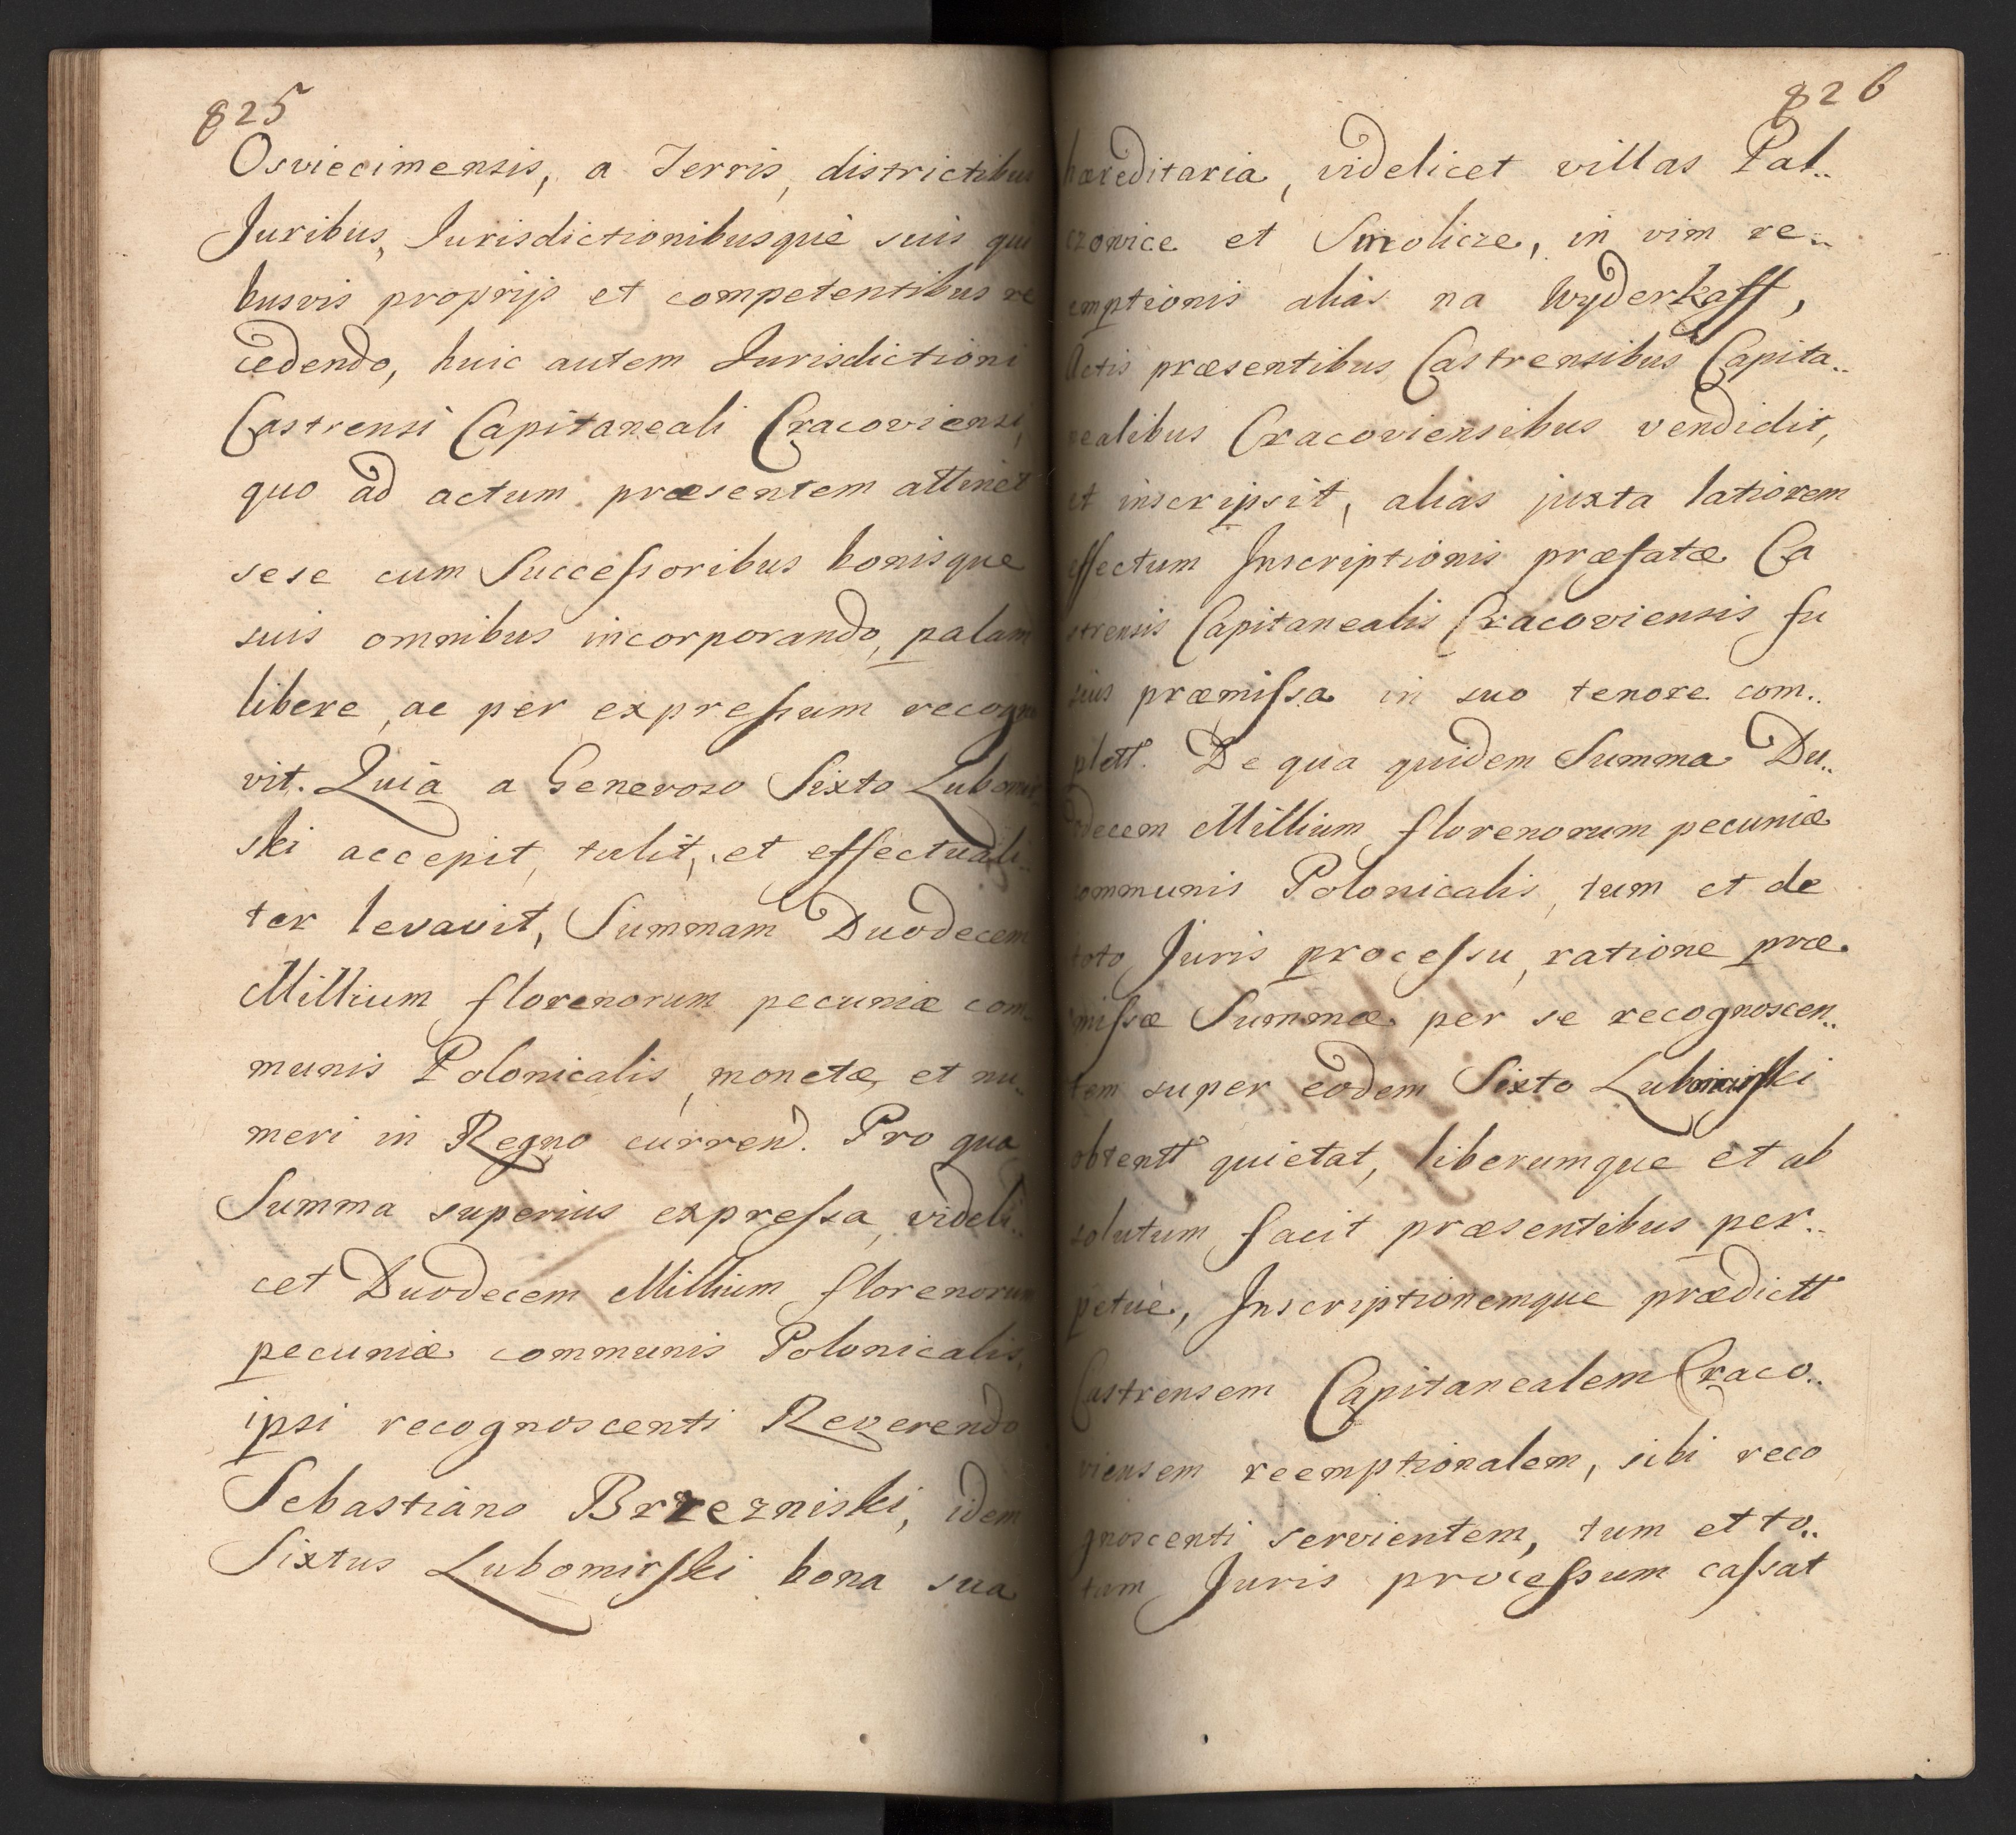 825
Osviecimensis, a Terris, districtibus
Juribus, Jurisdictionibusque suis qui
busvis proprijs et competentibus re
cedendo, huic autem Jurisdictioni
Castrensi Capitaneali Cracoviensi,
quo ad actum praesentem attinet
sese cum Successoribus bonisque
suis omnibus incorporando, palam
libere, ac per expressum recogno
vit. Quia a Generoso Sixto Lubomir
ski accepit, tulit, et effectuali..
ter levavit, Summam Duodecem
Millium florenorum pecuniæ com..
munis Polonicalis, monetæ, et nu..
meri in Regno currend. Pro qua
Summa superius expressa, videli..
cet Duodecem Millium florenorum
pecuniæ communis Polonicalis,
ipsi recognoscenti Reverendo
Sebastiano Brzezniski, idem
Sixtus Lubomirski bona sua
826
hæreditaria, videlicet villas Pal..
czovice et Smolicze, in vim re..
emptionis alias na Wyderkaff,
Actis præsentibus Castrensibus Capita..
nealibus Cracoviensibus vendidit,
et inscripsit, alias juxta latiorem
effectum Inscriptionis præfatæ Ca
strensis Capitanealis Cracoviensis fu
sius præmissa in suo tenore com..
plett. De qua quidem Summa Du..
odecem Millium florenorum pecuniæ
communis Polonicalis, tum et de
toto Juris processu, ratione præ.
missæ Summæ per se recognoscen..
tem super eodem Sixto Lubomirski
obtentt quietat, liberumque et ab
solutum facit præsentibus per..
petuè, Inscriptionemque prædictt
Castrensem Capitanealem Craco..
viensem reemptionalem, sibi reco
gnoscenti servientem, tum et to..
tum Juris processum cassat